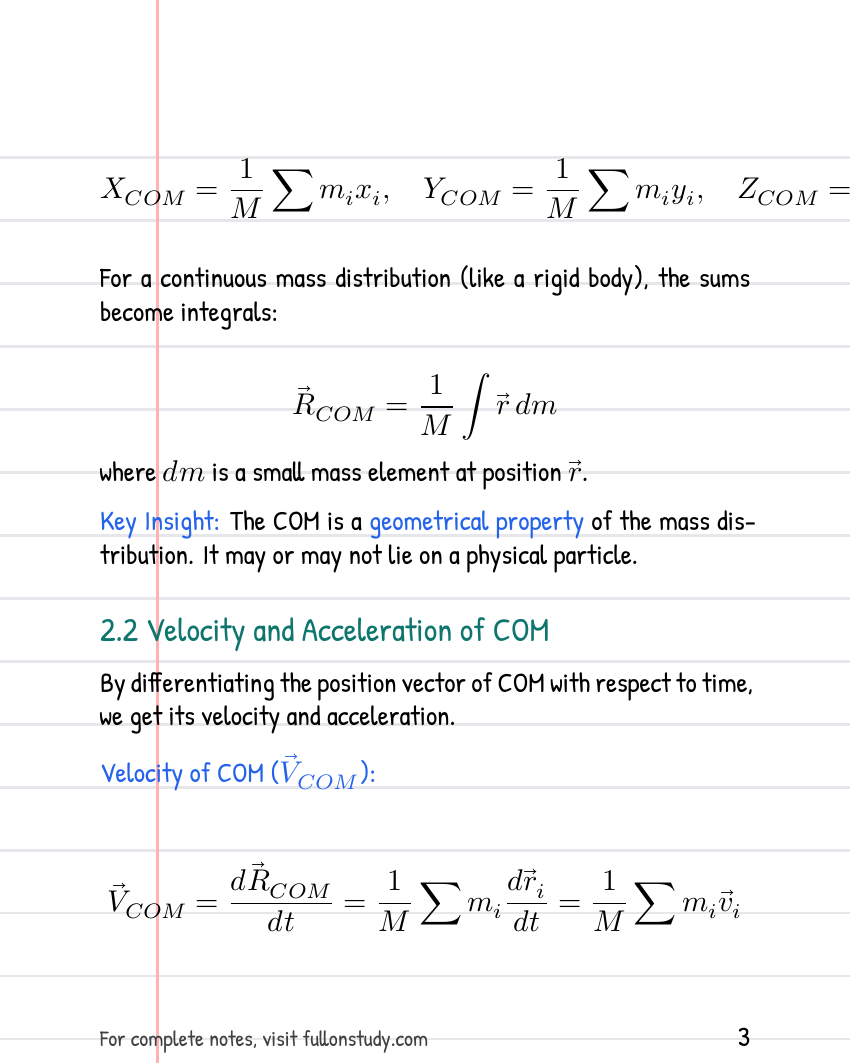 $X_{COM} = \frac{1}{M} \sum m_i x_i, \quad Y_{COM} = \frac{1}{M} \sum m_i y_i, \quad Z_{COM} =$
For a continuous mass distribution (like a rigid body), the sums
become integrals:
$\vec{R}_{COM} = \frac{1}{M} \int \vec{r} \, dm$
where $dm$ is a small mass element at position $\vec{r}$.
Key Insight: The COM is a geometrical property of the mass dis-
tribution. It may or may not lie on a physical particle.
2.2 Velocity and Acceleration of COM
By differentiating the position vector of COM with respect to time,
we get its velocity and acceleration.
Velocity of COM ($\vec{V}_{COM}$):
$\vec{V}_{COM} = \frac{d\vec{R}_{COM}}{dt} = \frac{1}{M} \sum m_i \frac{d\vec{r}_i}{dt} = \frac{1}{M} \sum m_i \vec{v}_i$
For complete notes, visit fullonstudy.com 3